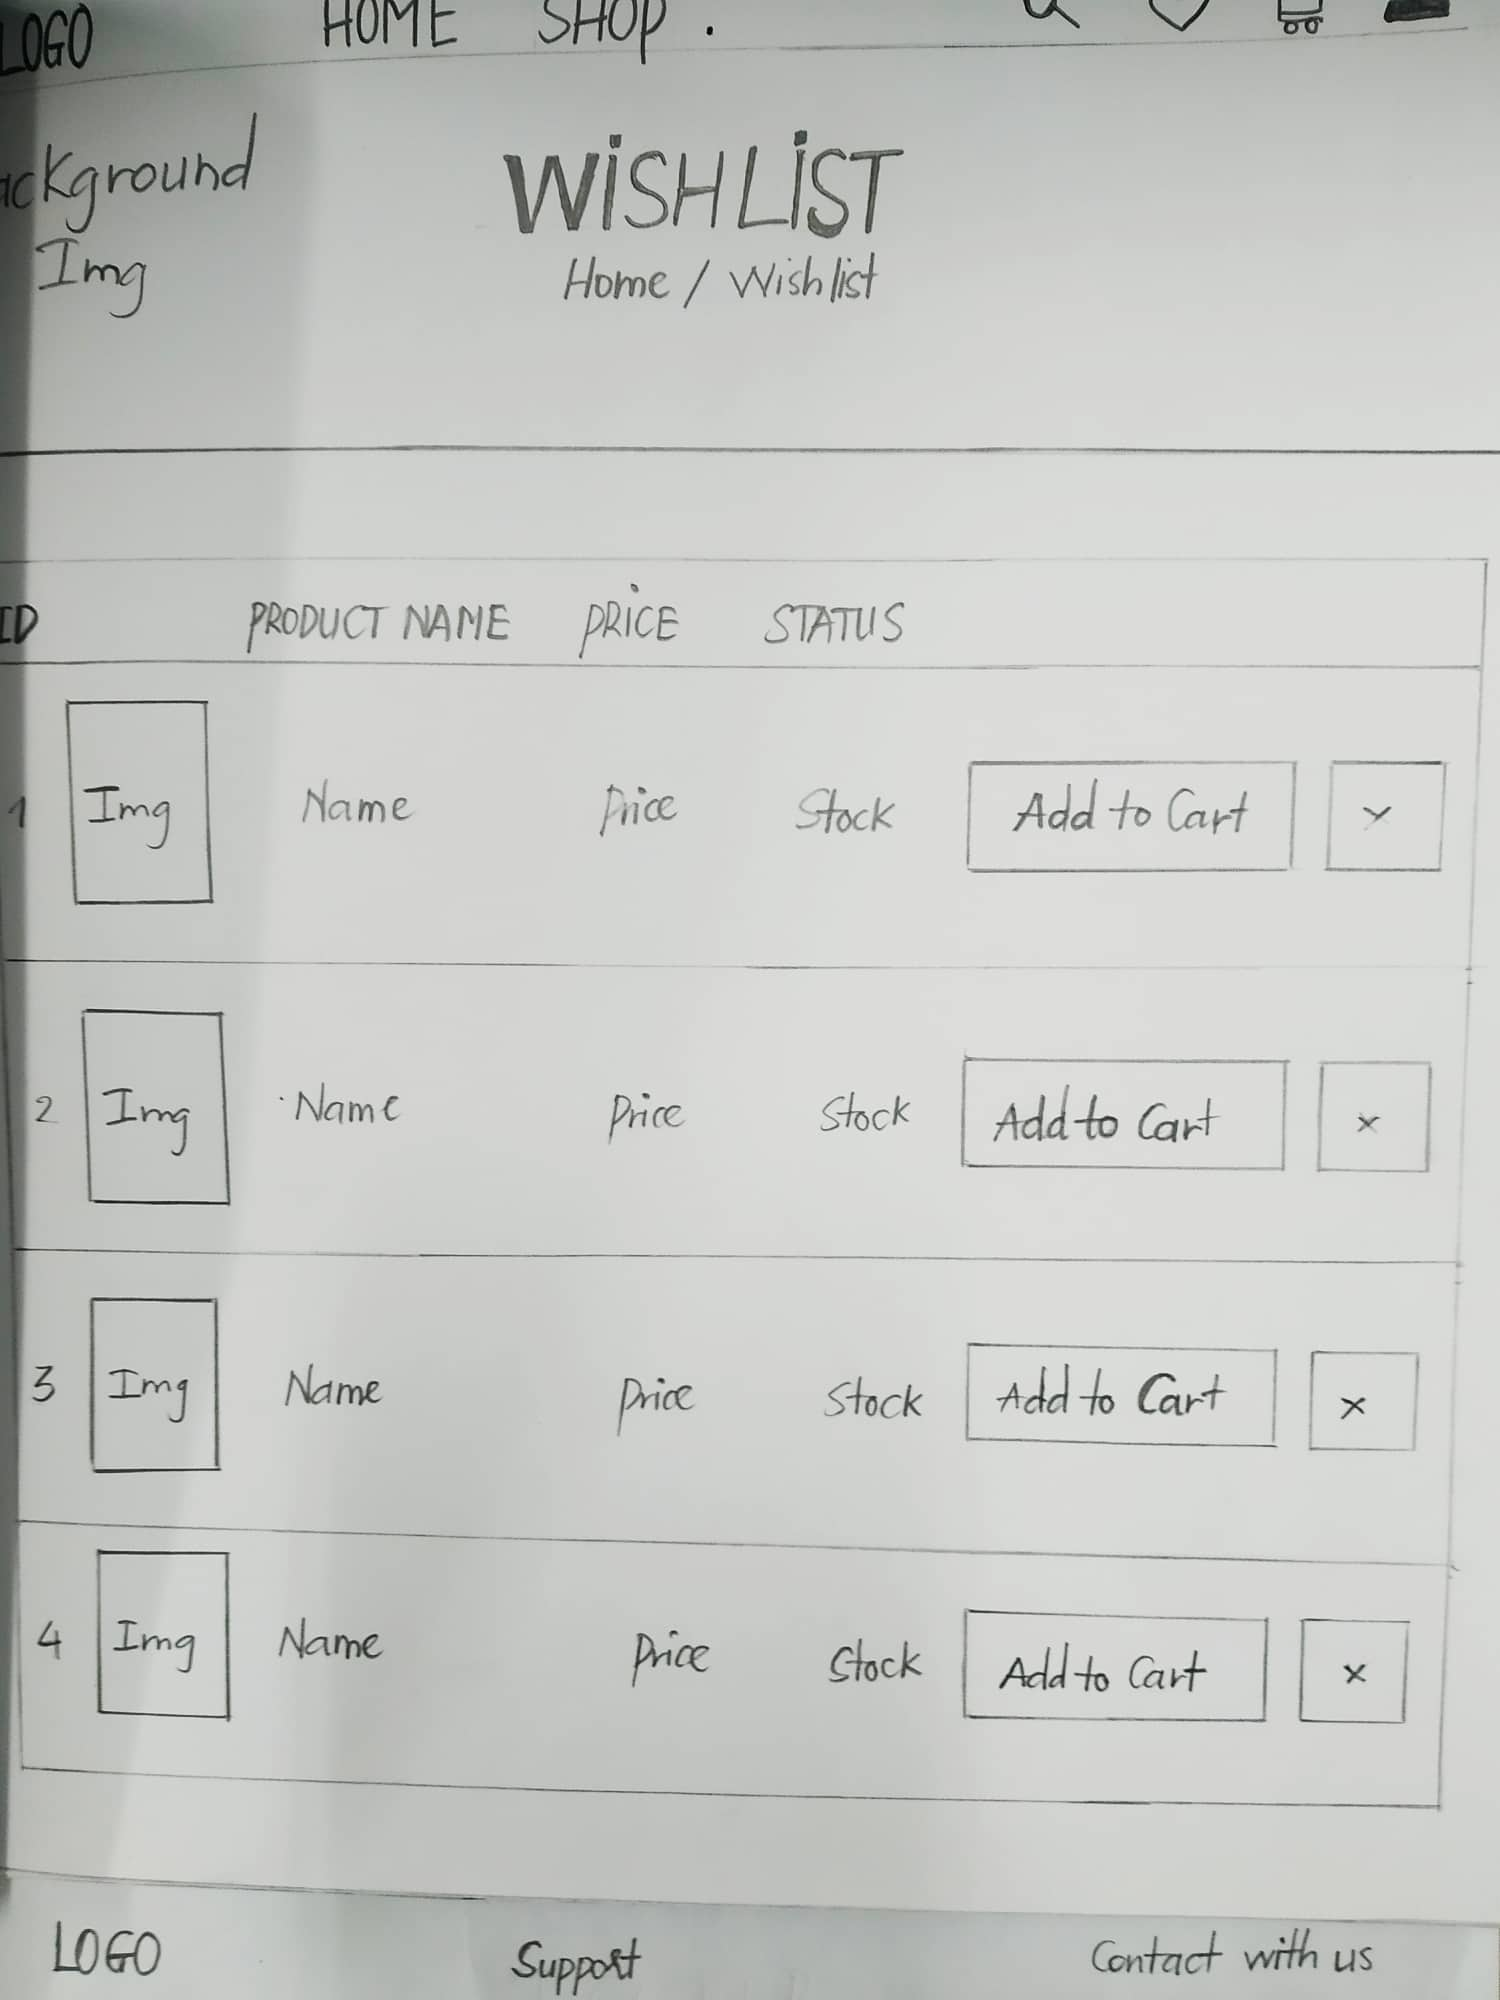 LOGO HOME SHOP
ckground
Img
WiSHLiST
Home / Wishlist
ID PRODUCT NAME PRiCE STATUS
1 Img Name Price Stock Add to Cart x
2 Img Name Price Stock Add to Cart x
3 Img Name Price Stock Add to Cart x
4 Img Name Price Stock Add to Cart x
LOGO Support Contact with us